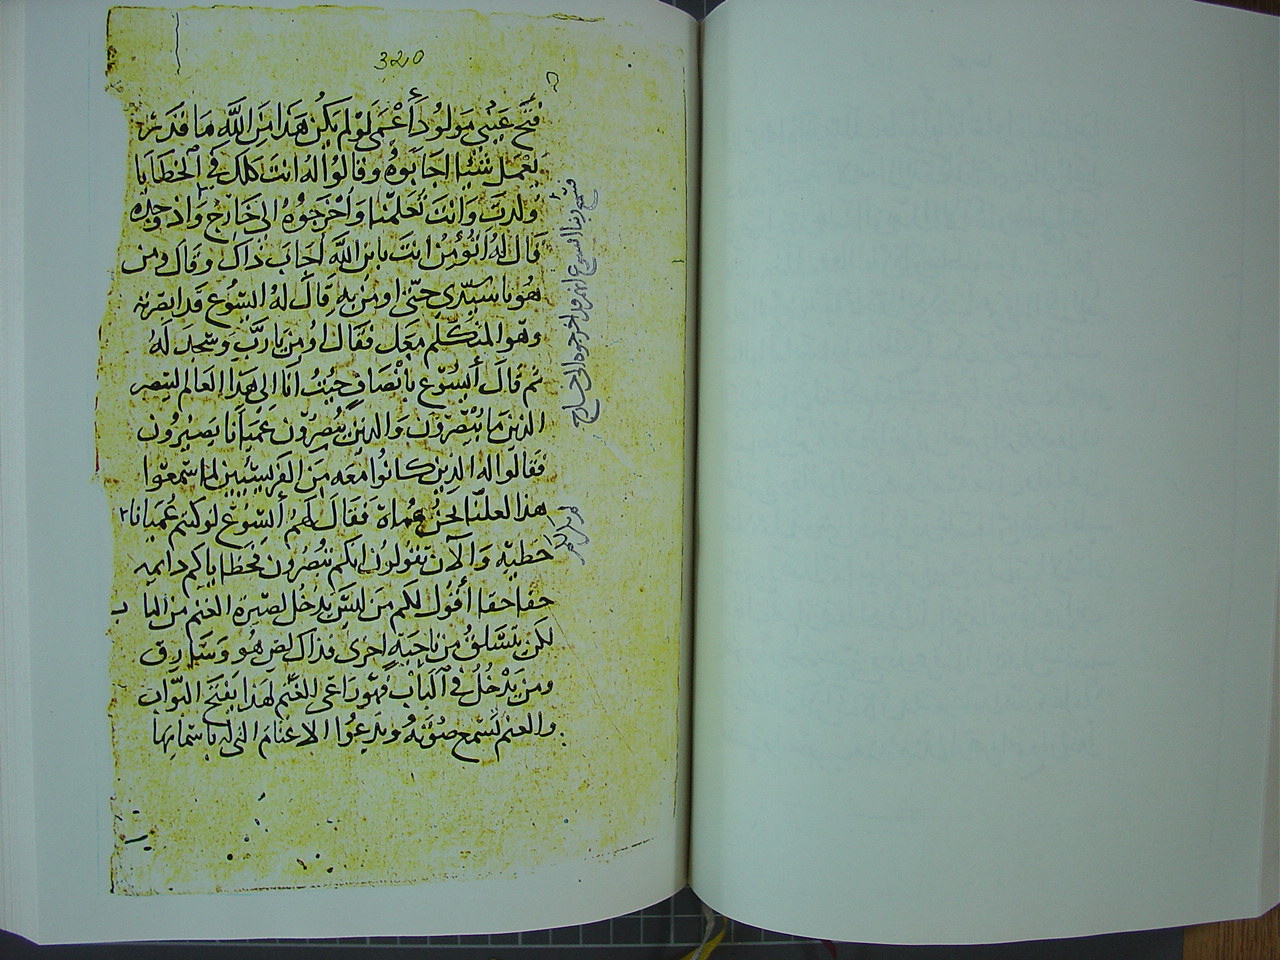 320
فتح عيني مولود أعمى لو لم يكن هذا من الله ما قدر
يعمل شيئا اجابوه وقالوا له انت كلك في الخطايا
ولدت وانت تعلمنا واخرجوه الى خارج
قال له اتؤمن انت بابن الله اجاب ذاك وقال ومن
هو يا سيدي حتى اومن به قال له ايسوع قد ابصرته
وهو المتكلم معك فقال اومن يا رب وسجد له
ثم قال أيسوع بانصاف جيت انا الى هذا العالم ليبصر
الذين ما يبصرون والذين يبصرون عميانا يصيرون
فقالوا له الذين كانوا معه من الفريسيين لما سمعوا
هذا لعلنا نحن عماة فقال لهم أيسوع لو كنتم عميانا
خطيه والآن تقولون انكم تبصرون فخطاياكم دايمه
حقا حقا أقول لكم من ليس يدخل لصيرة الغنم من الباب
لكن يتسلق من ناحية اخرى فذاك لص هو وسارق
ومن يدخل في الباب فهو راعي الغنم لهذا يفتح البواب
والغنم تسمع صوته ويدعوا الاغنام التي له باسمايها
ايسوع انهم اخرجوه الى خارج